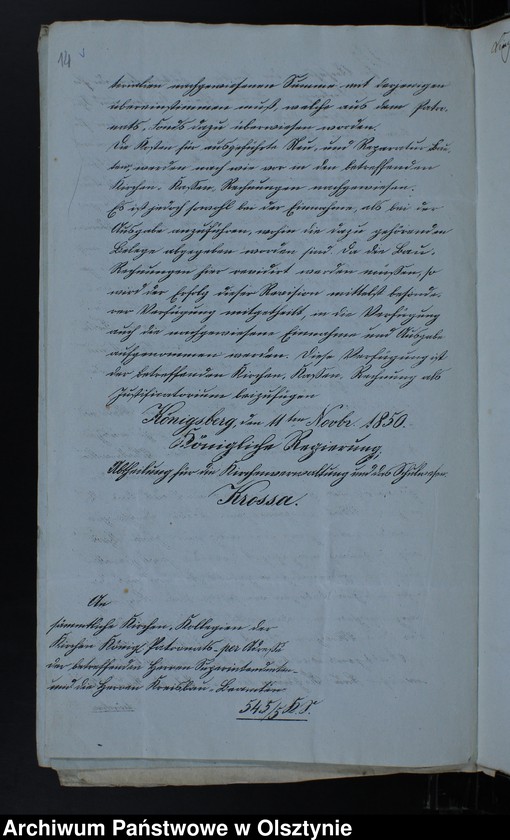 14
terialien nachgewiesenen Summe mit derjenigen
übereinstimmen muß, welche aus dem Patro-
nats-Fonds dazu überwiesen worden.
Die Kosten für ausgeführte Neu- und Reparatur Bau-
ten, werden nach wie vor in den betreffenden
Kirchen-Kassen-Rechnungen nachgewiesen.
Es ist jedoch sowohl bei der Einnahme, als bei der
Ausgabe anzuführen, wohin die dazu gehörenden
Belege abgegeben worden sind. Da die Bau-
Rechnungen hier revidirt werden müssen, so
wird der Erfolg dieser Revision mittelst besonde-
rer Verfügung mitgetheilt, in die Verfügung
auch die nachgewiesene Einnahme und Ausgabe
aufgenommen werden. Diese Verfügung ist
der betreffenden Kirchen-Kassen-Rechnung als
Justificatorium beizufügen
Königsberg, den 11ten Novbr. 1850.
Königliche Regierung,
Abtheilung für die Kirchenverwaltung und das Schulwesen.
Krossa.
An
sämmtliche Kirchen-Kollegien der
Kirchen Königl. Patronats per Adresse
der betreffenden Herren Superintendenten
und die Herren Kreisbau-Beamten
545/5 K.S.
Archiwum Państwowe w Olsztynie